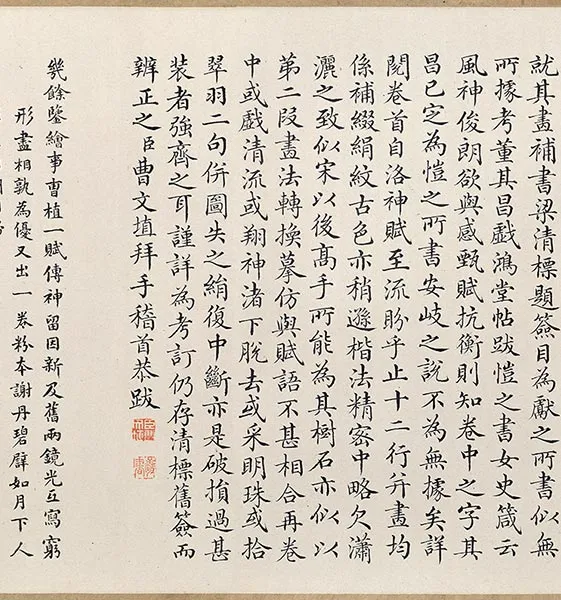 就其畫補書梁清標題簽目為獻之所書似無
所據考董其昌戲鴻堂帖跋愷之書女史箴云
風神俊朗欲與感甄賦抗衡則知卷中之字其
昌已定為愷之所書安岐之說不為無據矣詳
閱卷首自洛神賦至流盼乎止十二行并畫均
係補綴絹紋古色亦稍遜楷法精密中略欠瀟
灑之致似宋以後髙手所能為其樹石亦似以
第二段畫法轉換摹仿與賦語不甚相合再卷
中或戲清流或翔神渚下脫去或采明珠或拾
翠羽二句併圖失之絹復中斷亦是破損過甚
装者強齊之耳謹詳為考訂仍存清標舊簽而
辨正之臣曹文埴拜手稽首恭跋
幾餘鑒繪事曹植一賦傳神留因新及舊兩鏡光互寫窮
形盡相孰為優又出一卷粉本謝丹碧譬如月下人